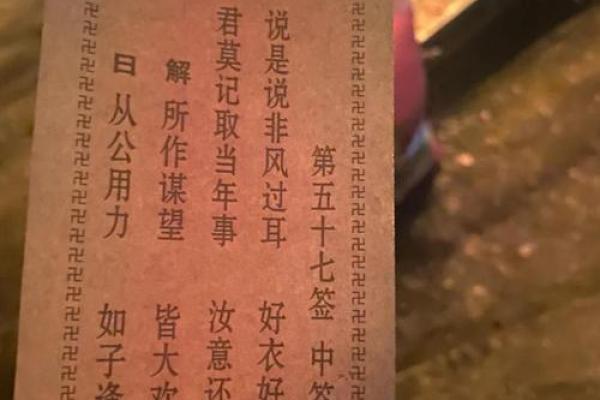 第五十七签 中签
说是说非风过耳 好衣好
君莫记取当年事 汝意还
解 所作谋望 皆大欢
曰 从公用力 如子